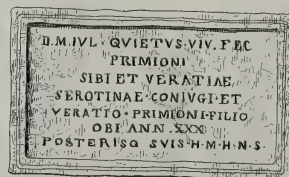 D.M.IVL · QVIETVS VIV. FEC
PRIMIONI
SIBI ET VERATIAE
SEROTINAE · CONIVGI · ET
VERATIO · PRIMIONI · FILIO
OBI · ANN · XXX
POSTERISQ SVIS · H · M · H · N · S ·